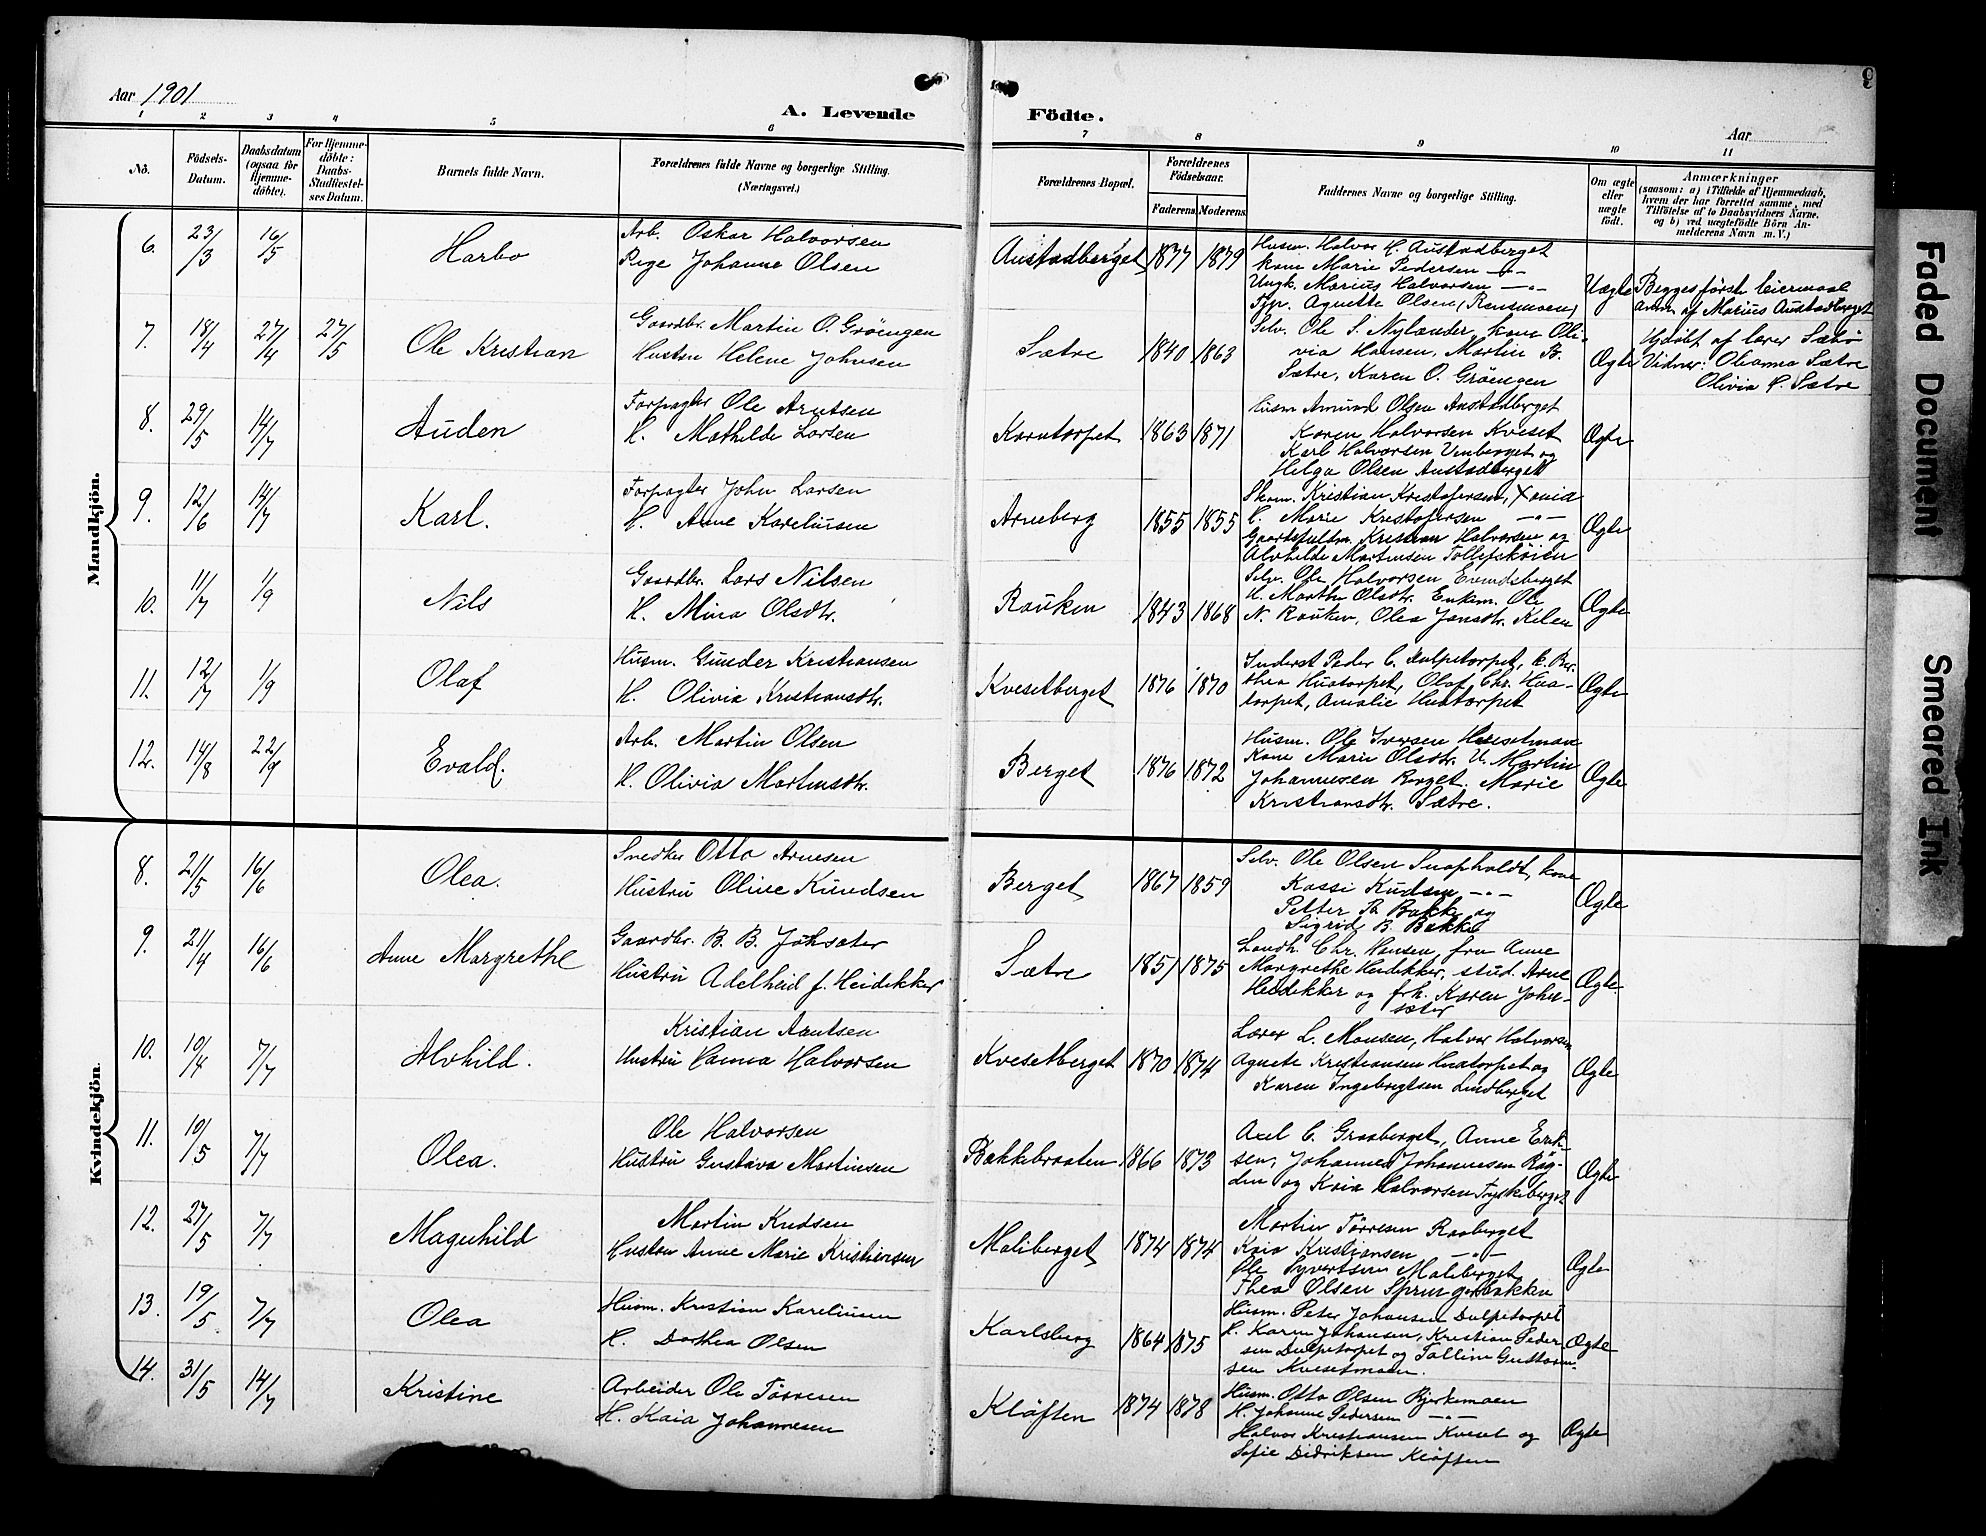 Aar 1901
A. Levende
Födte.
Aar
9
1 2 3 4 5 6 7 8 9 10 11
No.
Födsels-Datum.
Daabsdatum (ogsaa for Hjemme-döbte).
For Hjemme-döbte: Daabs-Stadfæstel-ses Datum.
Barnets fulde Navn.
Forældrenes fulde Navne og borgerlige Stilling. (Næringsvei.)
Forældrenes Bopæl.
Forældrenes Födselsaar.
Faderens Moderens
Faddernes Navne og borgerlige Stilling.
Om ægte eller uægte födt.
Anmærkninger
(saasom: a) i Tilfælde af Hjemmedaab,
hvem der har forrettet samme, med
Tilföielse af to Daabsvidners Navne.
og b) ved uægtefödte Börn An-
melderens Navn m.V.)
Mandkjön.
6. 23/3 16/5 Harbo
Arb. Oskar Halvorsen
Pige Johanne Olsen
Austadberget 1877 1879
Husm. Halvor H. Austadberget
kone Marie Pedersen —"—
Ungk. Marius Halvorsen —"—
Pige Agnette Olsen
Uægte
Begges første leiermaal
anm. af Marius Austadberget
7. 18/4 27/4 27/5 Ole Kristian
Gaardbr. Martin O. Gröengen
Hustru Helene Johnsen
Sætre 1840 1863
Selv. Ole S. Nylænder, kone Oli-
via Hansen, Martin B.
Sætre, Karen O. Gröengen
Ægte
Hjdöbt af lærer Sætre
Vidner: Oleanna Sætre
Olivia H. Sætre
8. 29/5 14/7 Auden
Forpagter Ole Arntsen
H. Mathilde Larsen
Korntorpet 1863 1871
Husm Amund Olsen Austadberget
Karen Halvorsen Kveset
Karl Halvorsen Vinberget og
Helga Olsen Austadberget
Ægte
9. 12/6 14/7 Karl.
Forpagter John Larsen
H. Anne Kareliussen
Arneberg 1855 1855
Skom. Kristian Kristofersen,
H. Marie Kristofersen —"—
Gaardsfuldm. Kristian Halvorsen og
Alvhilde Martinsen
Ægte
10. 11/7 1/9 Nils
Gaardbr. Lars Nilsen
H. Mina Olsdtr.
Rauken 1843 1868
Selv. Ole Halvorsen Evindsberget
H. Marthe Olsdtr. Enkem. Ole
N. Rauken, Olea Jansdtr. Kilen
Ægte
11. 12/7 1/9 Olaf
Husm. Gunder Kristiansen
H. Olivia Kristiansdtr.
Kvesetberget 1876 1870
Inderst Peder C. Dulpetorpet, H. Ber-
thea Huatorpet, Olaf Chr. Hua-
torpet, Amalie Huatorpet
Ægte
12. 14/8 22/9 Evald.
Arb. Martin Olsen
H. Olivia Martinsdtr.
Berget 1876 1872
Husm. Ole Iversen
Kone Marie Olsdtr. U. Martin
Johannesen Berget. Marie
Kristiansdtr. Sætre.
Ægte
Kvindekjön.
8. 21/5 16/6 Olea.
Snedker Otto Arnesen
Hustru Oline Knudsen
Berget 1867 1859
Selv. Ole Olsen Snapholdt, kone
Kassi Kudsen —"—
Petter B. Bakke og
Sigrid B. Bakke
Ægte
9. 21/4 16/6 Anne Margrethe
Gaardbr. B. B. Johsæter
Hustru Adelheid f. Heidekker
Sætre 1851 1875
Landh. Chr. Hansen, fru Anne
Margrethe Heidekker, stud. Arne
Heidekker og frk. Karen John-
sæter
Ægte.
10. 10/4 7/7 Alvhild.
Kristian Arntsen
Hustru Hanna Halvorsen
Kvesetberget 1870 1874
Lærer L. Monsen, Halvor Halvorsen
Agnete Kristiansen Huatorpet og
Karen Ingebrigtsen Lindberget
Ægte
11. 10/5 7/7 Olea.
Ole Halvorsen
Hustru Gustava Martinsen
Bakkebraaten 1866 1873
Axel C. Graaberget, Anne Erik-
sen, Johannes Johannesen Røg-
den og Kaia Halvorsen Tyskeberget
Ægte
12. 27/5 7/7 Magnhild
Martin Knudsen
Hustru Anne Marie Kristiansen
Maliberget 1874 1874
Martin Törresen Raaberget
Kaia Kristiansen —"—
Ole Syvertsen Maliberget
Thea Olsen Springerbakken
Ægte
13. 19/5 7/7 Olea
Husm. Kristian Kareliusen
H. Dorthea Olsen
Karlsberg 1864 1875
Husm. Peter Johansen Dulpetorpet
H. Karen Johansen, Kristian Peder-
sen Dulpetorpet og Talline Guttorm-
sen Kvesetmoen.
Ægte
14. 31/5 14/7 Kristine
Arbeider Ole Törresen
H. Kaia Johannesen
Klöften 1874 1878
Husm. Otto Olsen Bjerkemoen
H. Johanne Pedersen —"—
Halvor Kristiansen Kveset og
Sofie Didriksen Klöften
Ægte
Faded Document
Smeared Ink